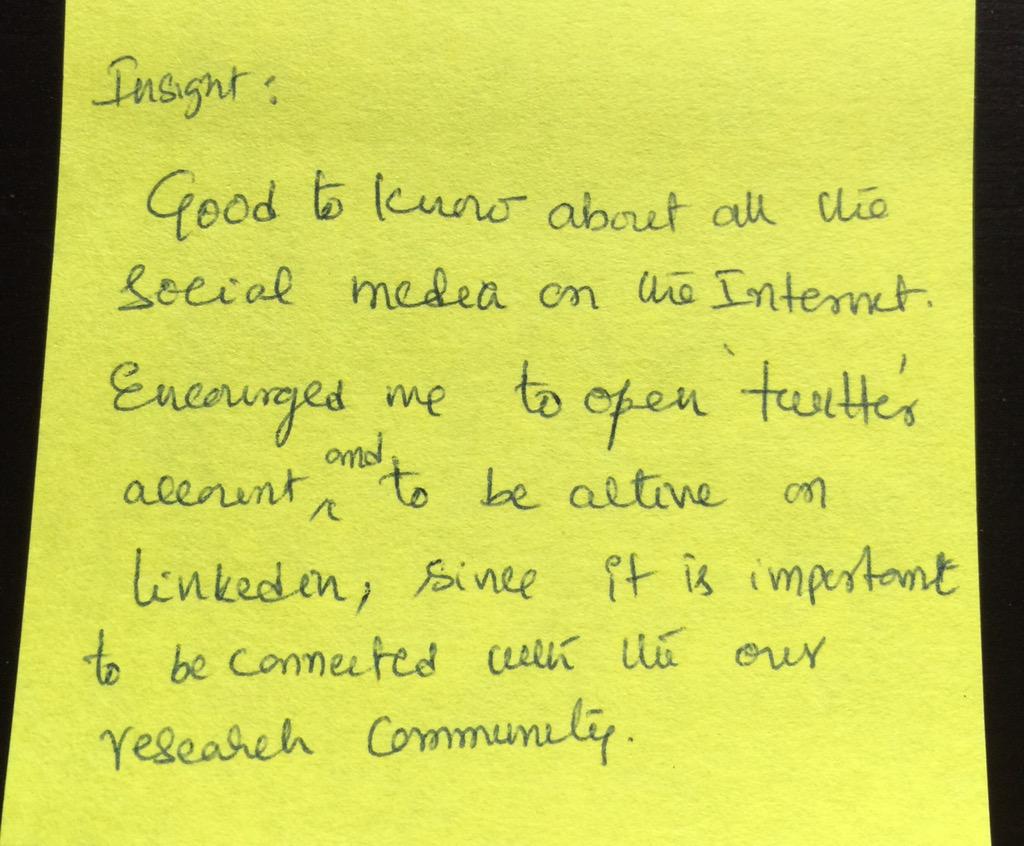 Insight:
Good to know about all the
social media on the Internet.
Encourged me to open 'twitter'
account, and to be active on
linkedin, since it is important
to be connected with the our
research community.